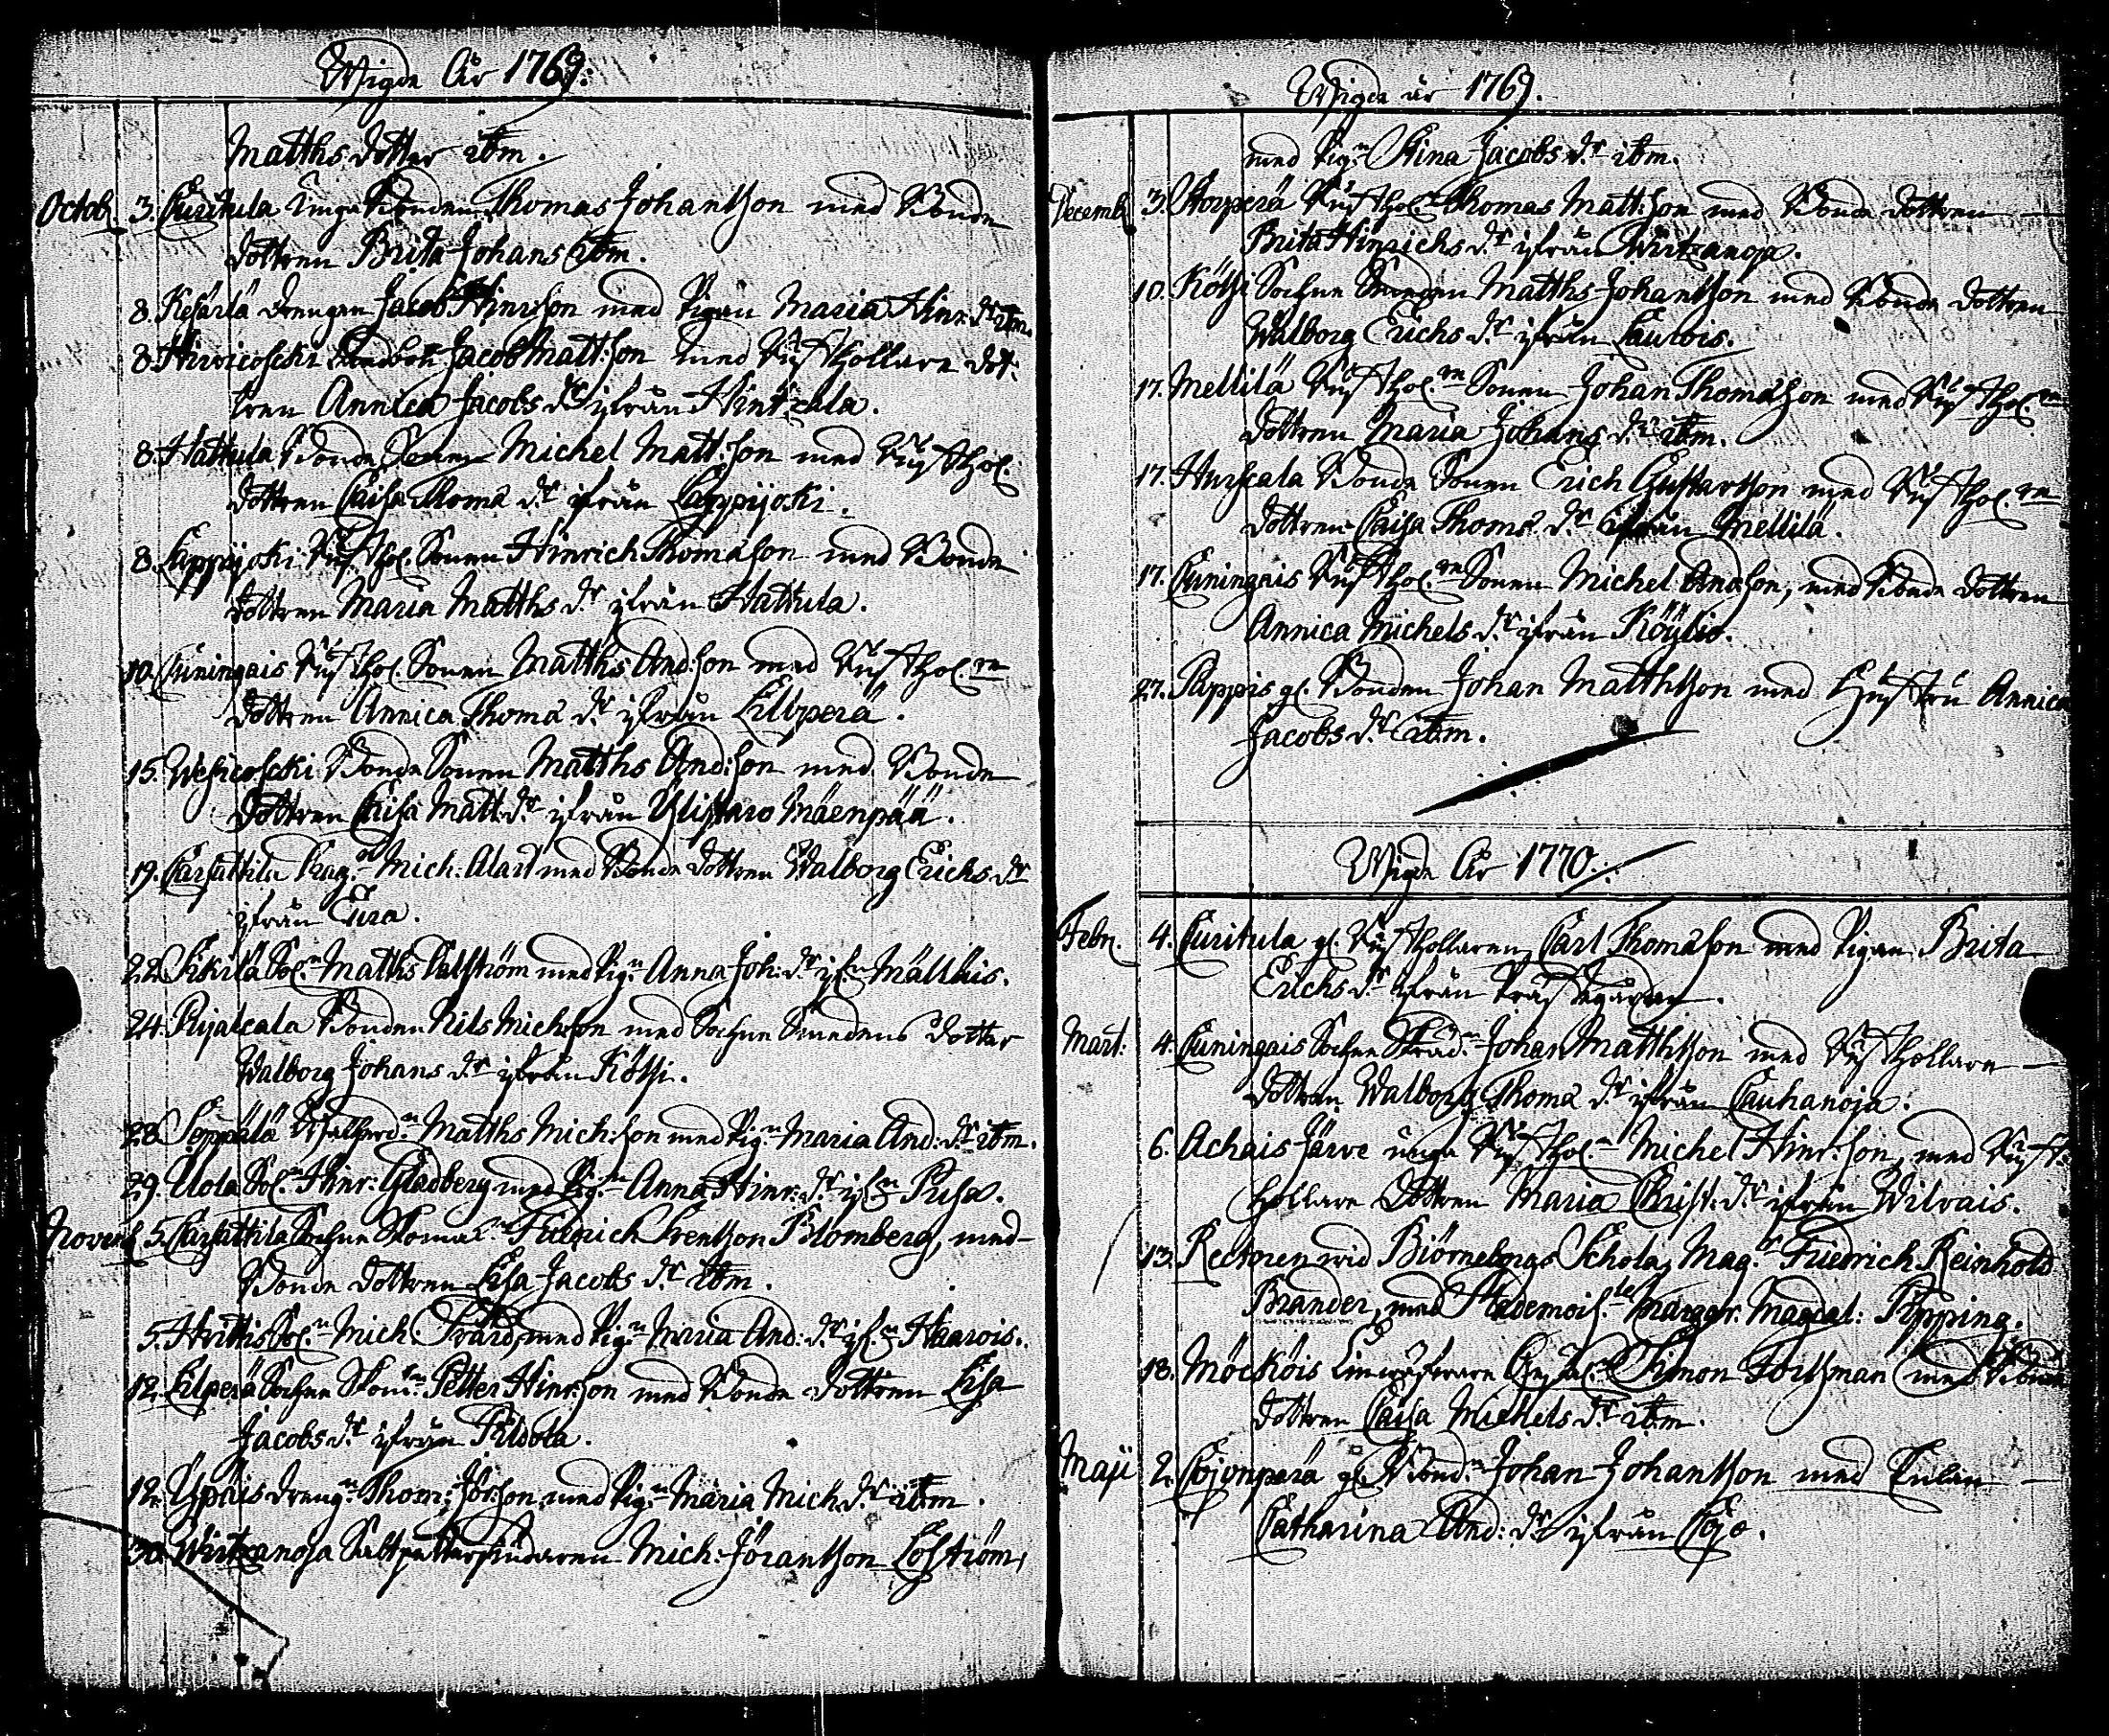 Wigde År 1769.
Matths dotter ibm.
Octob. 3. Curitula Unga Bonden Thomas Johantson med Bonde
dottren Brita Johans ibm.
8. Kesärlä drengen Jacob Hinrson med Pigan Maria Hinr. dr ibm.
8. Hirvicoscki Jacob Matt:son med Rusthollare dot-
tren Annica Jacobs dr ifrån
8. Hattula Bonde Sonen Michel Matt:son med Rusthol.
dottren Caisa Thoma dr ifrån Lappijoki.
8. Lappijoki Rusthol. Sonen Hinrich Thomason med Bonde
dottren Maria Matths dr ifrån Hattula.
10. Cuningais Rusthol. Sonen Matths And:son med Rusthol.rn
dottren Annica Thoma dr ifrån Eilopera.
15. Wesicoscki Bonde Sonen Matths And:son med Bonde
dottren Caisa Matt. dr ifrån Ylistaro Mäenpää.
19. Carsattila Drag. Mich: Alart med Bonde dottren Walborg Erichs dr
ifrån Eura.
22. Sikilä Sol.n Matths Palström med Pig.n Anna Joh: dr if.n Mälläis.
24. Pujalcala Bonden Nils Michelson med Sochne Smedens dotter
Walborg Johans dr ifrån Kötsi.
28. Seppälä Matths Mich:son med Pig.n Maria And: dr ibm.
29. Uola Sol.n Hinr: Gladberg med Pig.n Anna Hinr: dr if.n Pusa.
Novemb. 5. Carsattila Sochne Skomak. Friedrich Frentson Blomberg, med
Bonde dottren Lisa Jacobs dr ibm.
5. Huttis Sol.n Mich. Svärd, med Pig.n Maria And: dr if.n Haarois.
12. Eilperä Sochne Skom. Petter Hinrson med Bonde dottren Lisa
Jacobs dr ifrån
12. Ypäis dreng.n Thom: Jörson, med Pig.n Maria Mich. dr ibm.
30. Wirtzanoja Saltpettersiudaren Mich: Jörantson Löfström,
Wigde år 1769.
med Pig.n Stina Jacobs dr ibm.
Decemb. 3. Horperä Rusthol. Thomas Matt:son med Bonde dottren
Brita Hinrichs dr ifrån Wirtzanoja.
10. Kötsi Sochne Smeden Matths Johantson med Bonde dottren
Walborg Erichs dr ifrån Caurois.
17. Mellilä Rusthol.rn Sonen Johan Thomason med Rusthol.rn
dottren Maria Johans dr ibm.
17. Hurscala Bonde Sonen Erich Gustavson med Rusthol.rn
dottren Caisa Thoma dr ifrån Mellilä.
17. Cuningais Rusthol.rn Sonen Michel Andson, med Bonde dottren
Annica Michels dr ifrån Köyliö.
27. Pappis gl. Bonden Johan Matthson med Hustru Annica
Jacobs dr ibm.
Wigde År 1770.
Febr. 4. Curitula gl. Rusthollaren Carl Thomason med Pigan Brita
Erichs dr ifrån Prästegården.
Mart: 4. Cuningais Sochne Skräd.n Johan Matthson med Rusthollare
dottren Walborg Thoma dr ifrån Cauhanoja.
6. Achais Järve unga Rusthol.n Michel Hinr:son, med Rust-
hollare dottren Maria Christ: dr ifrån Wilvais.
13. Rectoren wid Biörneborgs Schola, Mag.r Friedrich Reinhold
Brander, med Mademois.le Margr. Magdal: Pipping.
18. Möcköis Simon Forssman med Bonde
dottren Caisa Michels dr ibm.
Maji 2. Cojonperä gl. Bond.n Johan Johantson med Enkan
Catharina And: dr ifrån Cojo.